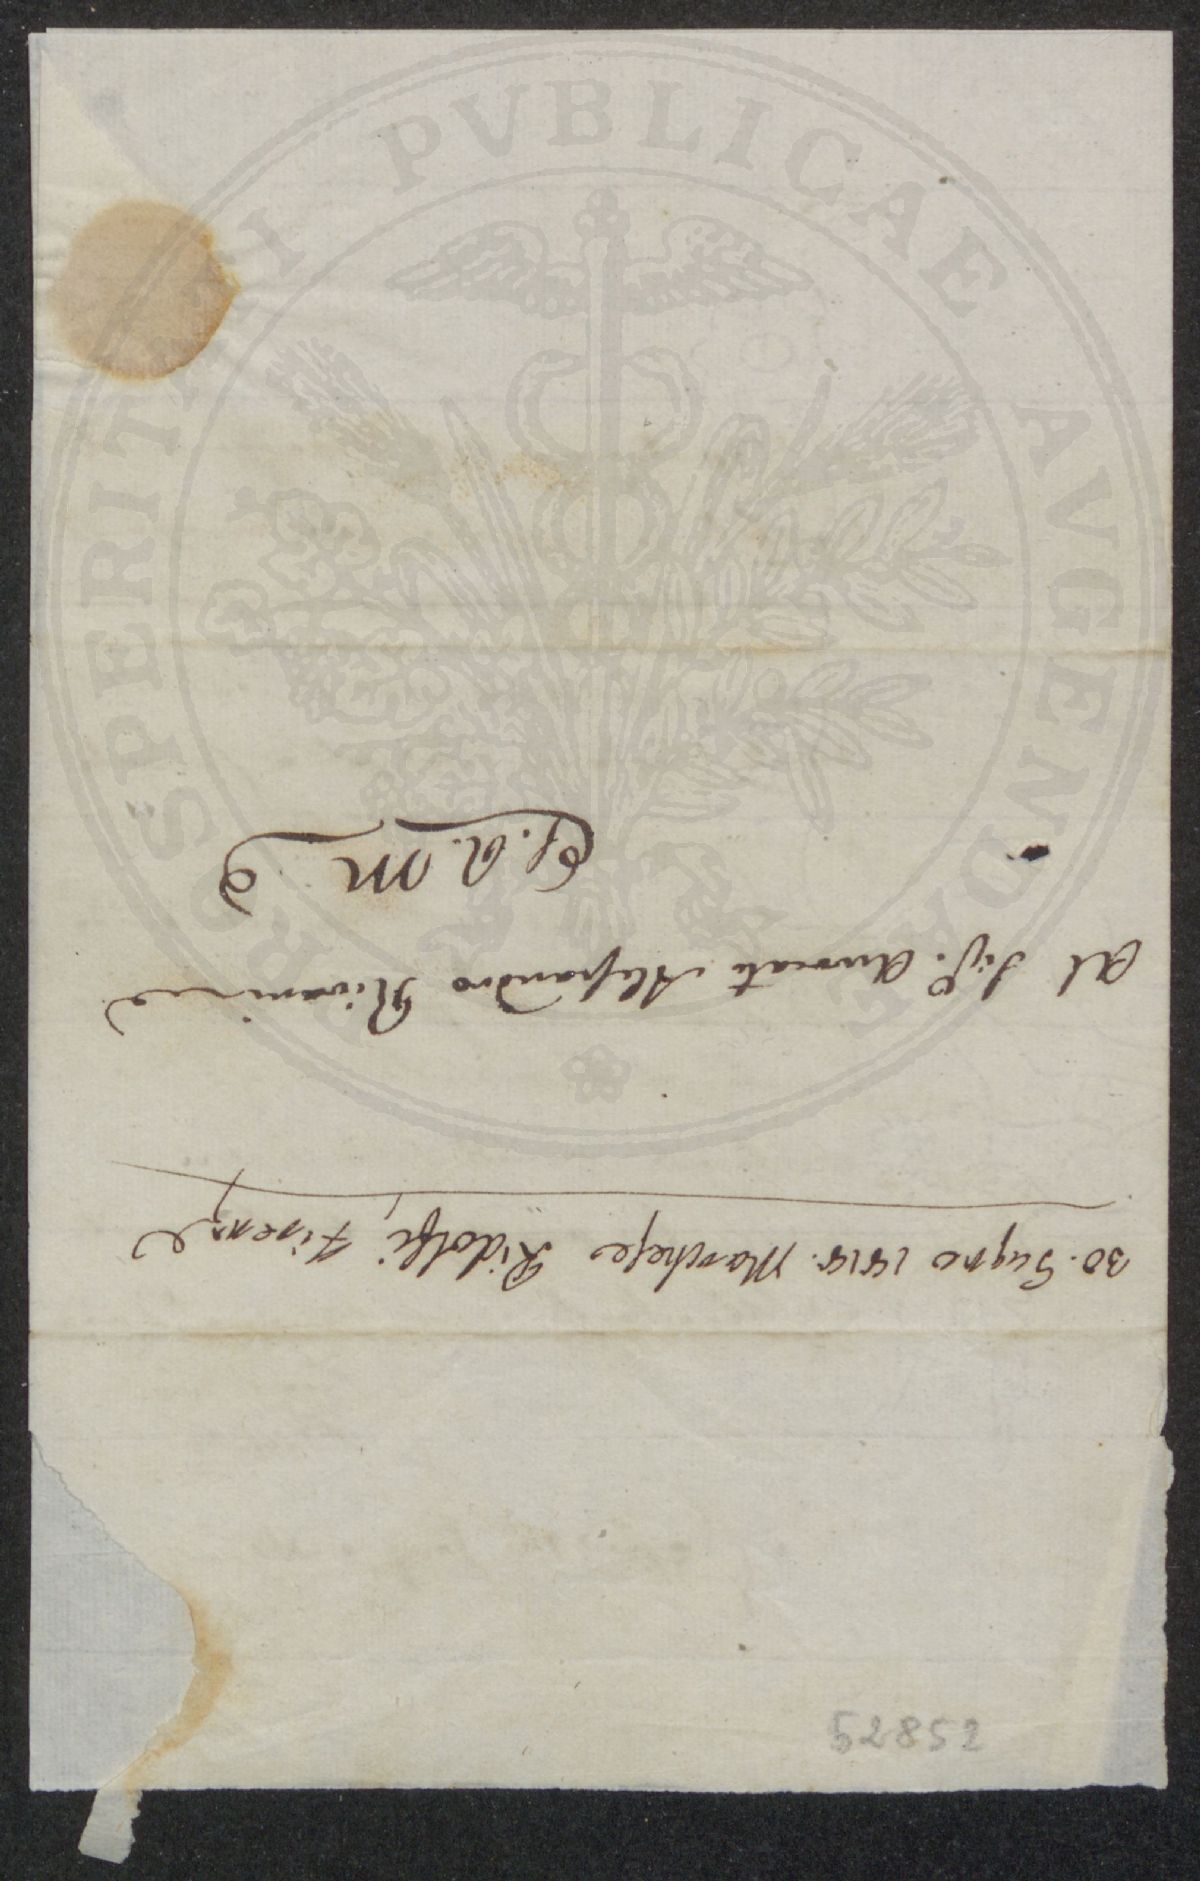 30. Gugno 1818. Marchese Ridolfi, Firenze
Al Sig.r Avvocato Alessandro Rivani
S. R. M.
52852
PROSPERITATI PVBLICAE AVGENDAE